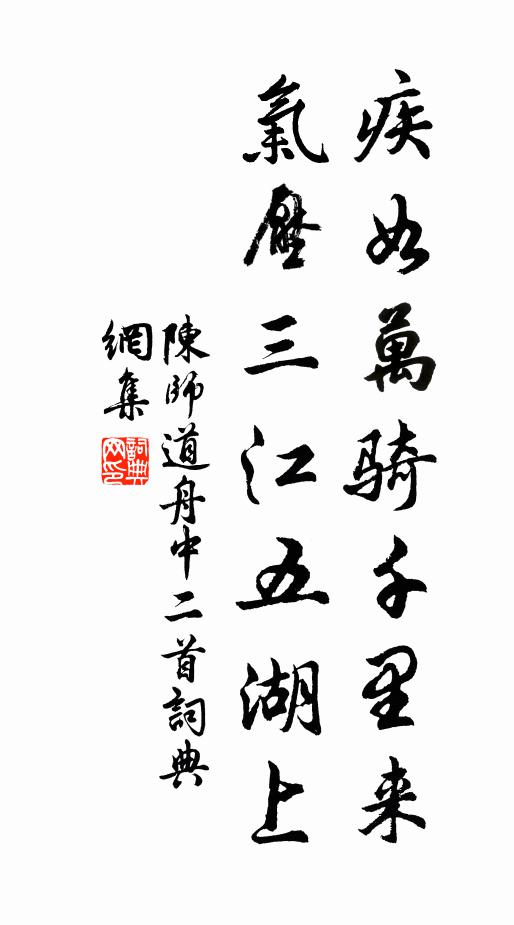 疾如萬騎千里来
氣壓三江五湖上
陳師道舟中二首詞典
網集
詞典
网印